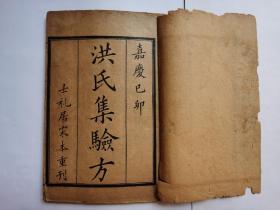 嘉慶己卯
洪氏集驗方
士礼居宋本重刊